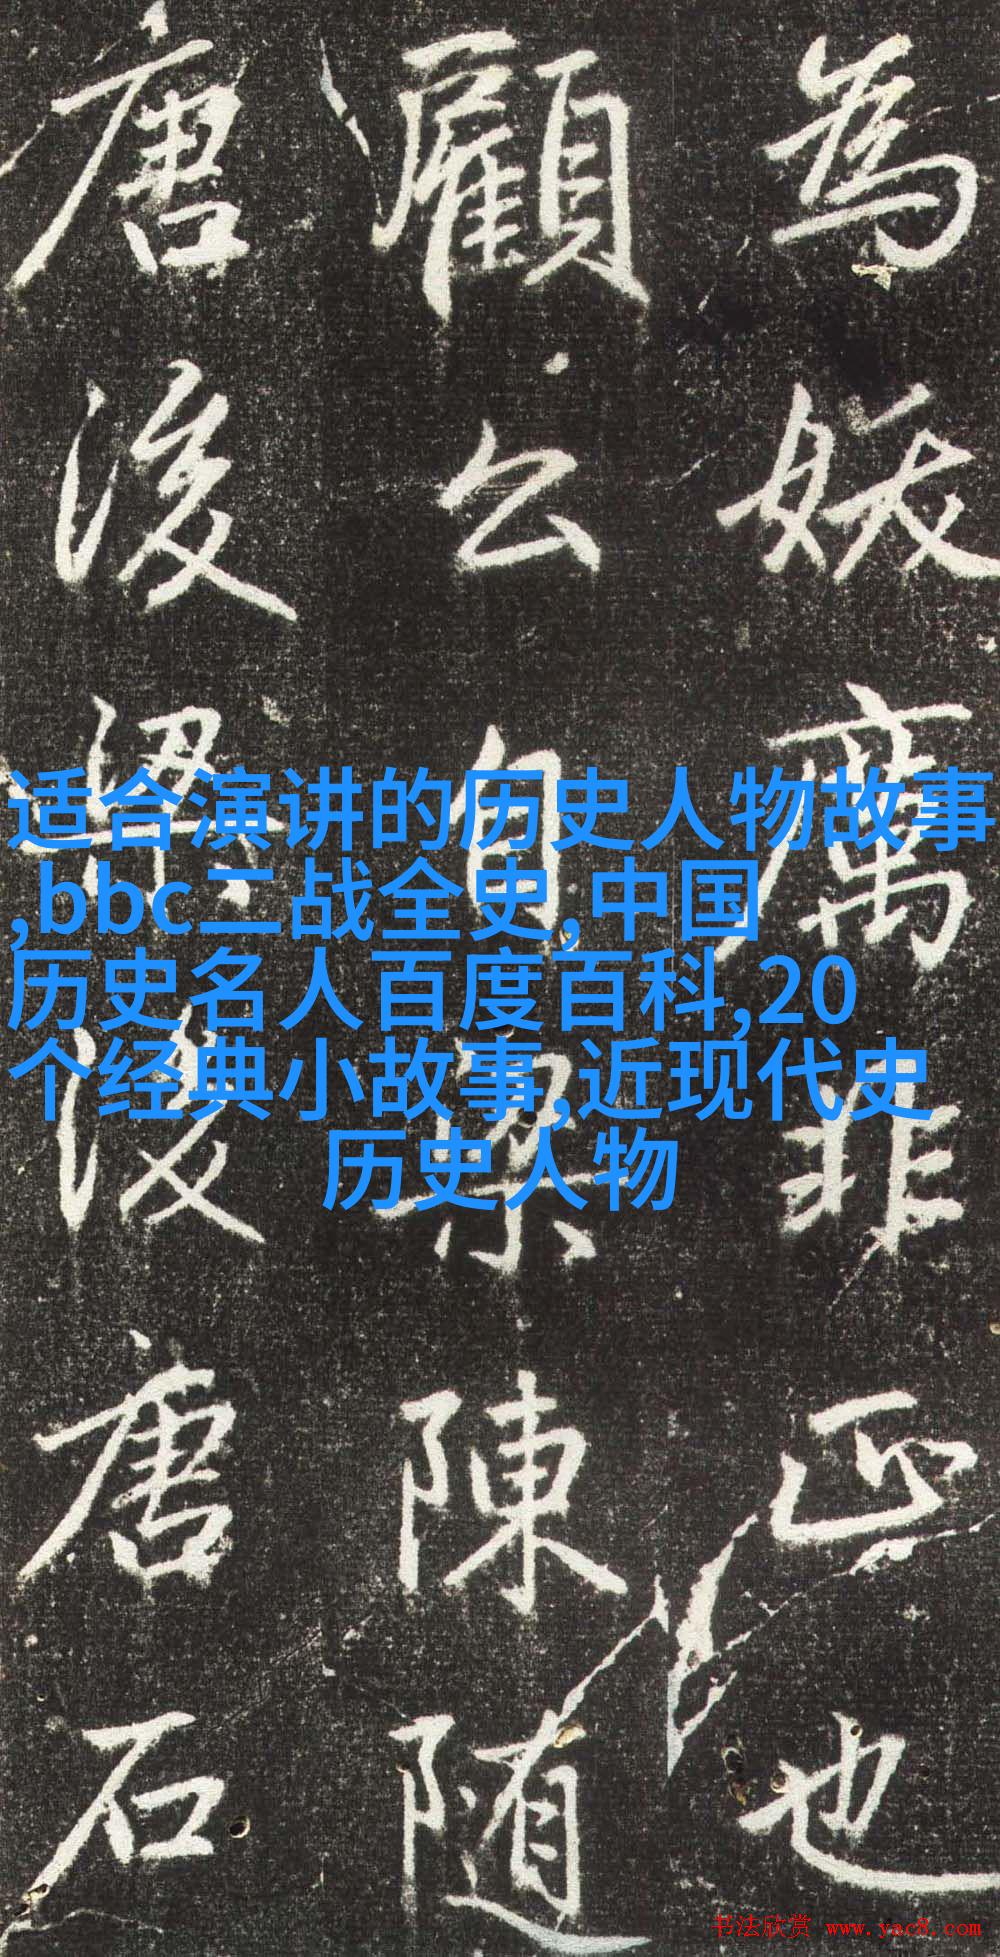 為妖厲非正也
顧公自梁陳随
唐後後唐石
适合演讲的历史人物故事
,bbc二战全史,中国
历史名人百度百科,20
个经典小故事,近现代史
历史人物
书法欣赏 www.yac8.com